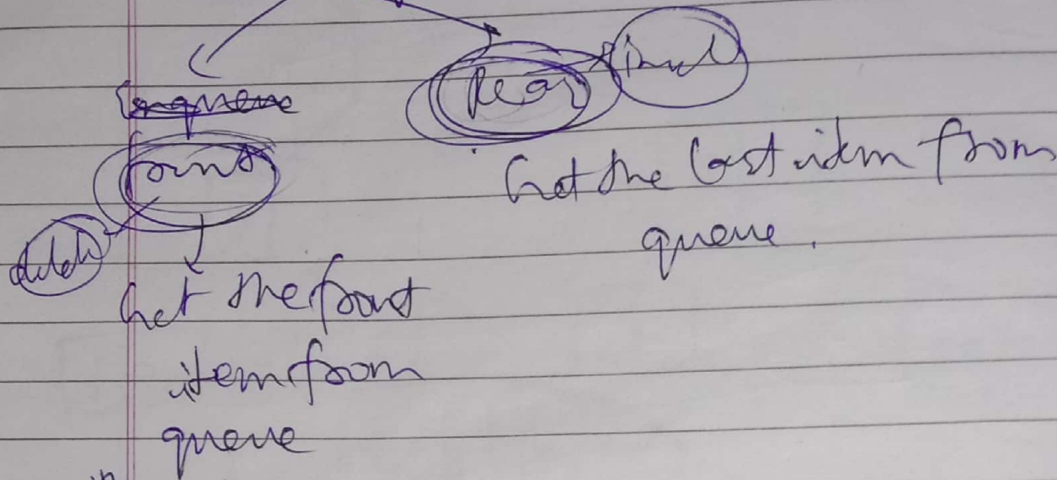 Enqueue
Rear
front
Get the last item from
queue.
Get the front
item from
queue